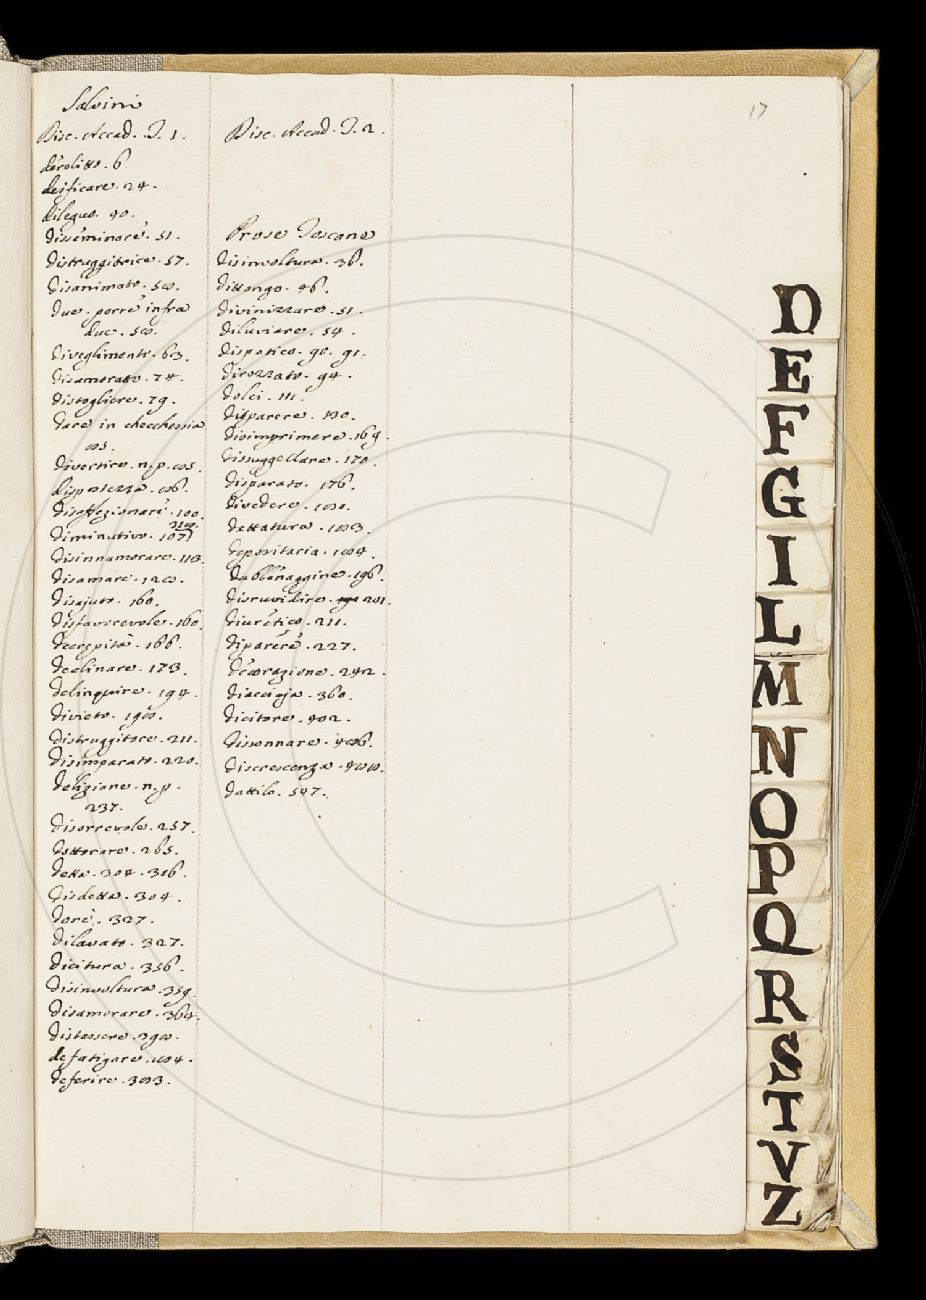 17
Salvini
Disc. Accad. T. 1.
derelitto. 6
deificare. 24.
dileguo. 40.
disseminare. 51.
distruggitrice. 57.
disanimato. 58.
due. porre infra
due. 58.
diveglimento. 63.
disamorato. 74.
distogliere. 79.
dare in checchessia
85.
divertire. n.p. 85.
disaffezionare. 100.
diminutivo. 107.
218.
disinnamorare. 113.
disamare. 128.
disajuto. 160.
disfavorevole. 160.
decrepità. 166.
declinare. 173.
delinquire. 194.
divieto. 198.
distruggitore. 211.
disimparato. 220.
delizione. n.p.
237.
disorrevole. 257.
dottorare. 265.
detta. 304. 306.
disdetta. 304.
dore. 327.
dilavato. 327.
dicitura. 356.
disinvoltura. 359.
disamorare. 364.
distessere. 398.
defatigare. 184.
deferire. 383.
Disc. Accad. T. 2.
Prose Toscane
disinvoltura. 36.
dittongo. 46.
divinizzare. 51.
diluviare. 54.
dispotico. 90. 91.
dirozzato. 94.
dolci. 111.
disparere. 130.
disimprimere. 169.
dissuggellare. 170.
disparato. 176.
divedere. 180.
dettatura. 183.
depositaria. 184.
dabbenaggine. 196.
disruvidire. 201.
diuretico. 211.
diparere. 227.
decorazione. 242.
diacciaja. 360.
dicitore. 402.
dissonnare. 486.
discrescenza. 488.
dattilo. 547.
D
E
F
G
I
L
M
N
O
P
Q
R
S
T
V
Z